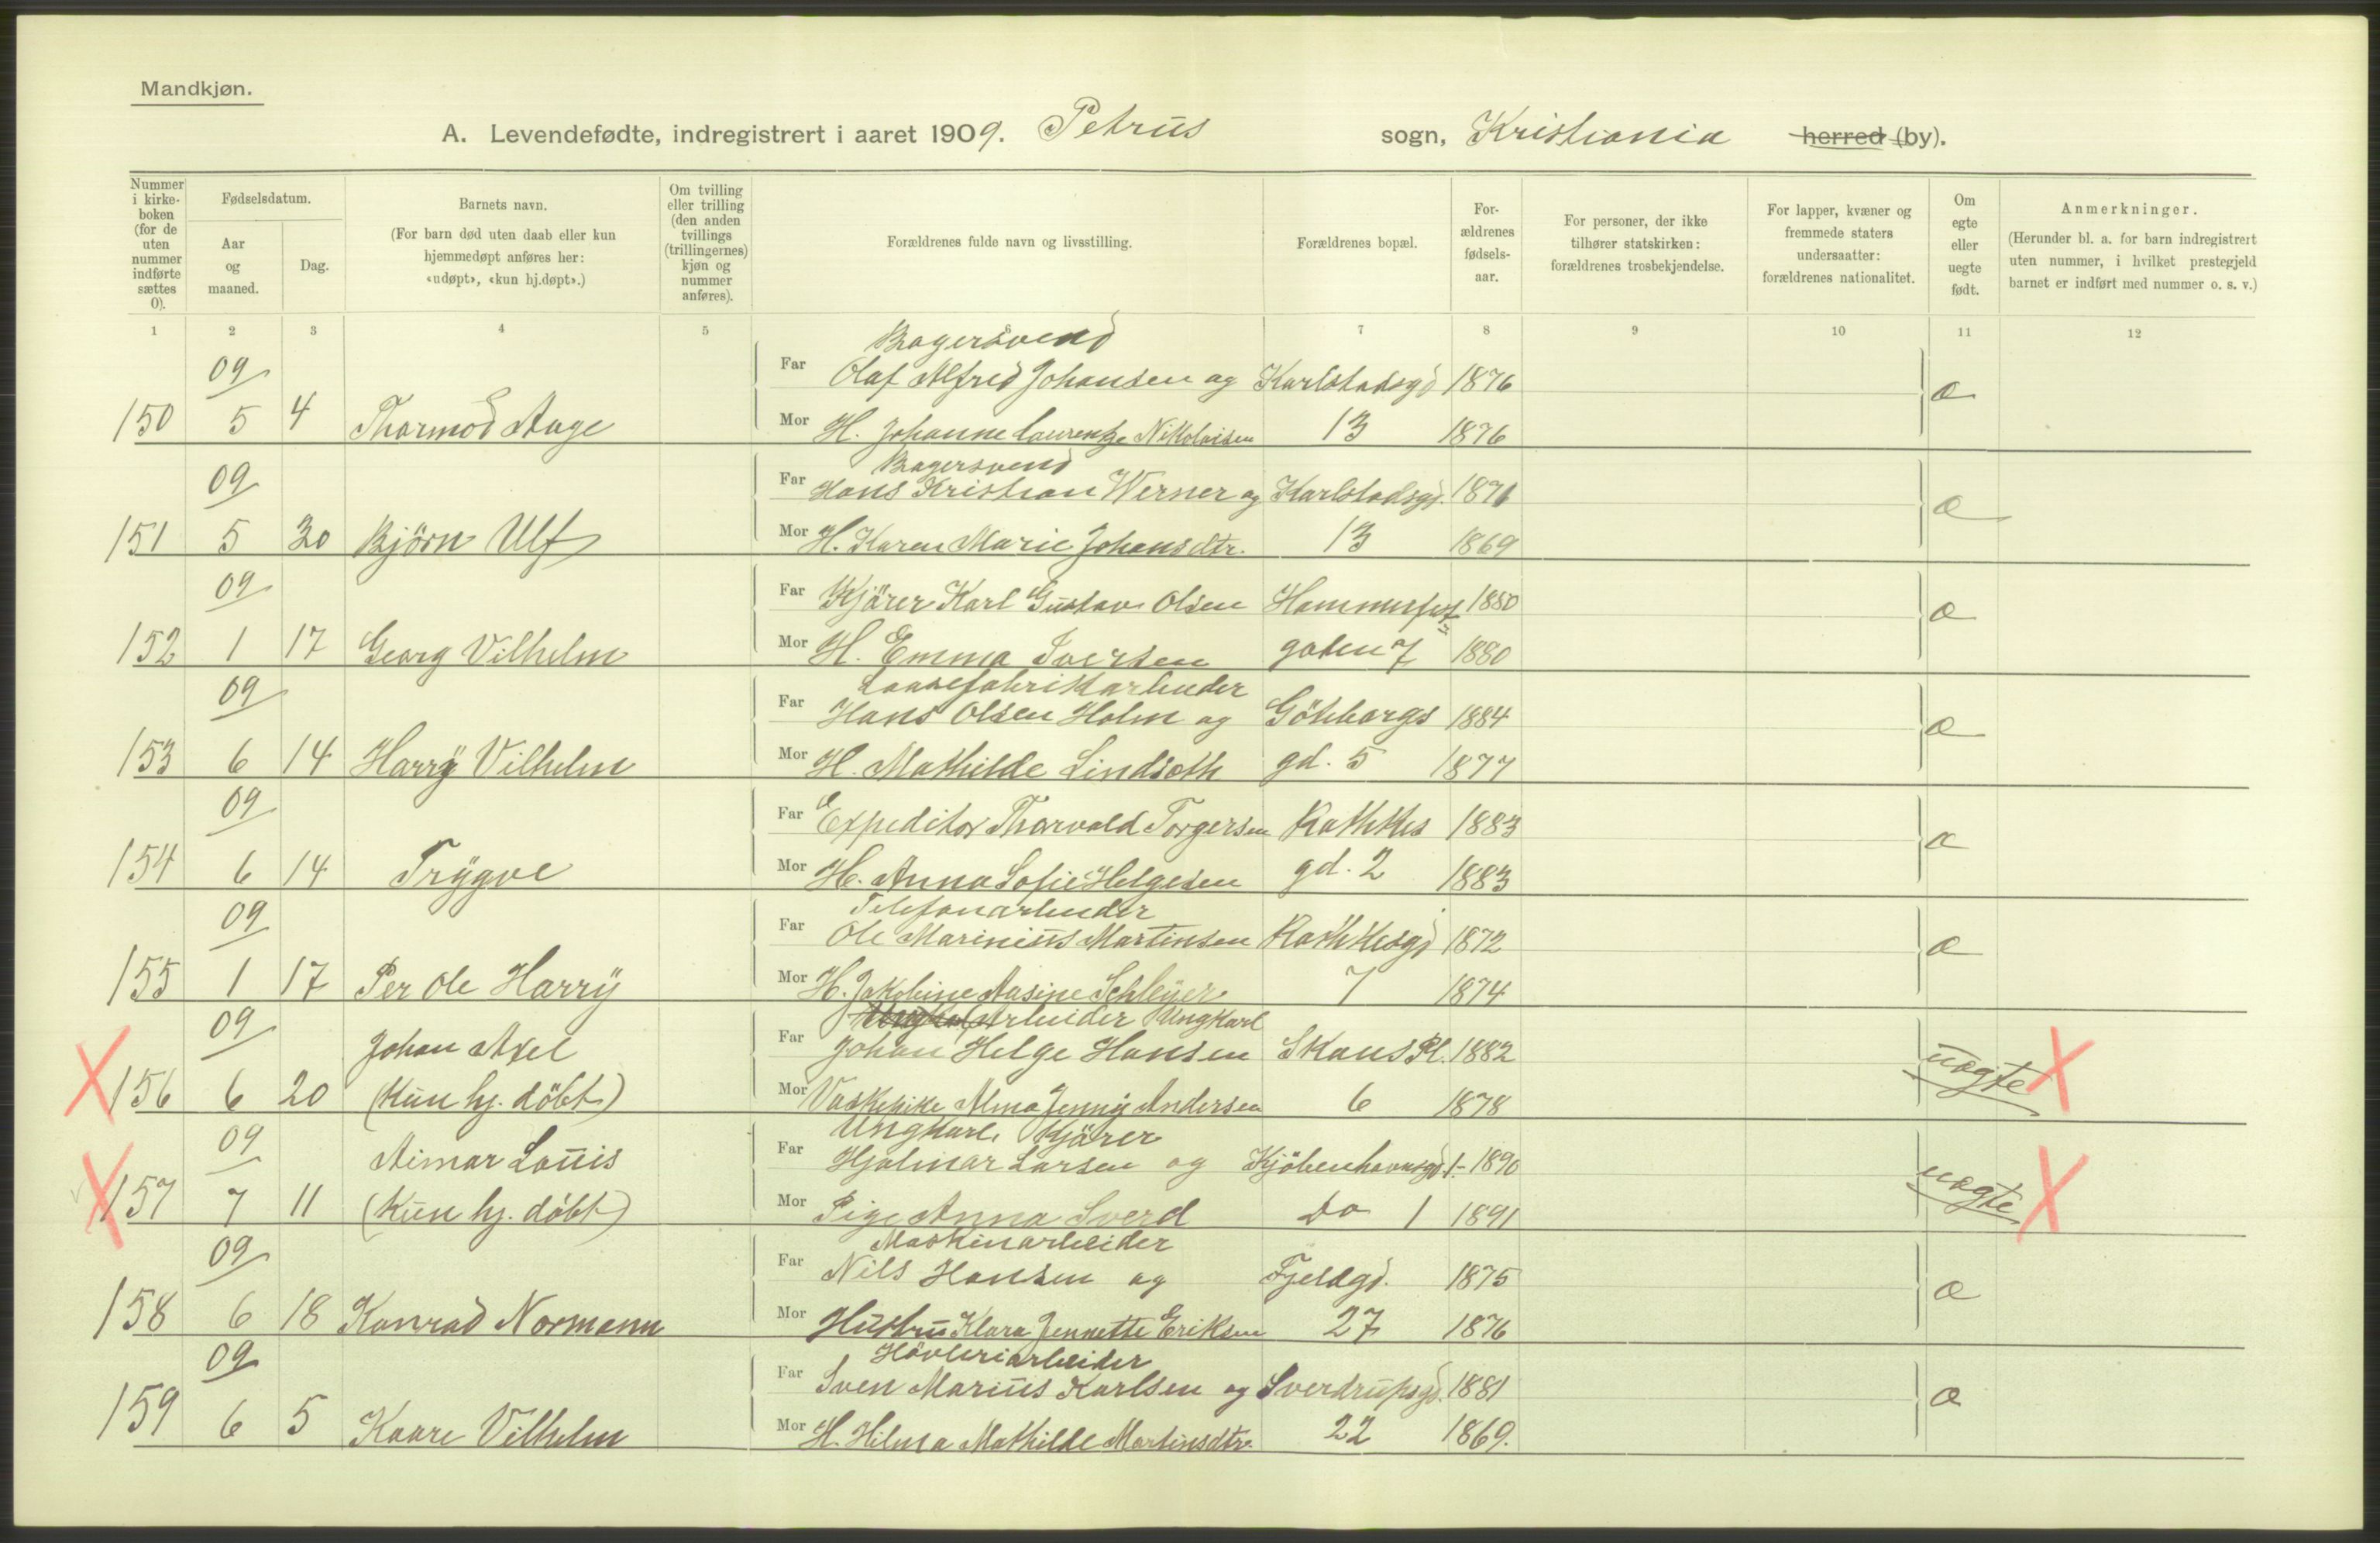 Mandkjøn.
A. Levendefødte, indregistrert i aaret 1909. Petrus sogn, Kristiania herred (by).
Nummer i kirke-boken (for de uten nummer indførte sættes 0).
Fødselsdatum.
Aar og maaned.
Dag.
Barnets navn.
(For barn død uten daab eller kun hjemmedøpt anføres her: «udøpt», «kun hj.døpt».)
Om tvilling eller trilling (den anden tvillings (trillingernes) kjøn og nummer anføres).
Forældrenes fulde navn og livsstilling.
Forældrenes bopæl.
For-ældrenes fødsels-aar.
For personer, der ikke tilhører statskirken: forældrenes trosbekjendelse.
For lapper, kvæner og fremmede staters undersaatter: forældrenes nationalitet.
Om egte eller uegte født.
Anmerkninger.
(Herunder bl. a. for barn indregistrert uten nummer, i hvilket prestegjeld barnet er indført med nummer o. s. v.)
1 2 3 4 5 6 7 8 9 10 11 12
Bagersvend
09 Far Olaf Alfred Johansen og Karlstadsgd 1876
150 5 4 Thormod Aage Mor H. Johanne Laurentze Nikolaisen 13 1876 æ
Bagersvend
09 Far Hans Kristian Werner og Karlstadsgd. 1871
151 5 30 Björn Ulf Mor H. Karen Marie Johansdtr. 13 1869 æ
09 Far Kjörer Karl Gustav Olsen Hammerfest 1880
152 1 17 Georg Vilhelm Mor H. Emma Iversen gaten 7 1880 æ
09 Far Hans Olsen Holm og Göteborgs 1884
153 6 14 Harry Vilhelm Mor H. Mathilde Lindseth gd. 5 1877 æ
09 Far Expeditør Thorvald Torgersen Rathkes 1883
154 6 14 Trygve Mor H. Anna Sofie Helgesen gd. 2 1883 æ
Telefonarbeider
09 Far Ole Marinius Martinsen Rathkesgd 1872
155 1 17 Per Ole Harry Mor H. Jakobine Aasine Schleyer 7 1874 æ
Ungkarl Arbeider Ungkarl
09 Johan Axel Far Johan Helge Hansen Skaus Pl. 1882
156 6 20 (Kun hj. döbt) Mor Vaskepike Alma Jenny Andersen 6 1878 uægte
Ungkarl. Kjörer
09 Aimar Louis Far Hjalmar Larsen og Kjöbenhavnsgd. 1.- 1890
157 7 11 (Kun hj. döbt) Mor Pige Anna Sverd Do 1 1891 uægte
Maskinarbeider
09 Far Nils Hansen og Fjeldgd. 1875
158 6 18 Konrad Normann Mor Hustru Klara Jennette Eriksen 27 1876 æ
Hövleriarbeider
09 Far Sven Marius Karlsen og Sverdrupsgd. 1881
159 6 5 Kaare Vilhelm Mor H. Hilma Mathilde Martinsdtr. 22 1869. æ